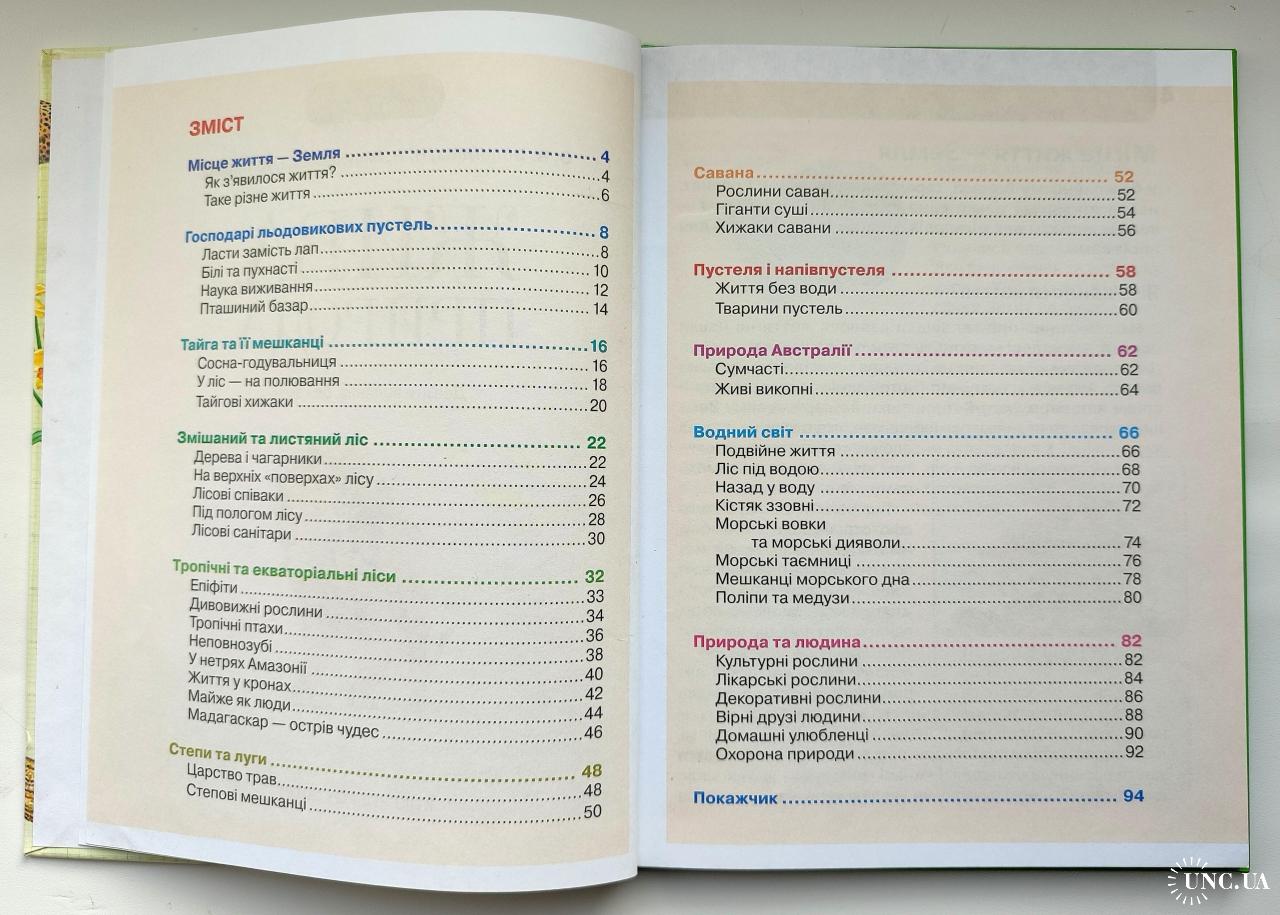 ЗМІСТ
Місце життя — Земля ........ 4
Як з’явилося життя? ........ 4
Таке різне життя ........ 6
Господарі льодовикових пустель ........ 8
Ласти замість лап ........ 8
Білі та пухнасті ........ 10
Наука виживання ........ 12
Пташиний базар ........ 14
Тайга та її мешканці ........ 16
Сосна-годувальниця ........ 16
У ліс — на полювання ........ 18
Тайгові хижаки ........ 20
Змішаний та листяний ліс ........ 22
Дерева і чагарники ........ 22
На верхніх «поверхах» лісу ........ 24
Лісові співаки ........ 26
Під пологом лісу ........ 28
Лісові санітари ........ 30
Тропічні та екваторіальні ліси ........ 32
Епіфіти ........ 33
Дивовижні рослини ........ 34
Тропічні птахи ........ 36
Неповнозубі ........ 38
У нетрях Амазонії ........ 40
Життя у кронах ........ 42
Майже як люди ........ 44
Мадагаскар — острів чудес ........ 46
Степи та луги ........ 48
Царство трав ........ 48
Степові мешканці ........ 50
Савана ........ 52
Рослини саван ........ 52
Гіганти суші ........ 54
Хижаки савани ........ 56
Пустеля і напівпустеля ........ 58
Життя без води ........ 58
Тварини пустель ........ 60
Природа Австралії ........ 62
Сумчасті ........ 62
Живі викопні ........ 64
Водний світ ........ 66
Подвійне життя ........ 66
Ліс під водою ........ 68
Назад у воду ........ 70
Кістяк ззовні ........ 72
Морські вовки
та морські дияволи ........ 74
Морські таємниці ........ 76
Мешканці морського дна ........ 78
Поліпи та медузи ........ 80
Природа та людина ........ 82
Культурні рослини ........ 82
Лікарські рослини ........ 84
Декоративні рослини ........ 86
Вірні друзі людини ........ 88
Домашні улюбленці ........ 90
Охорона природи ........ 92
Покажчик ........ 94
UNC.UA